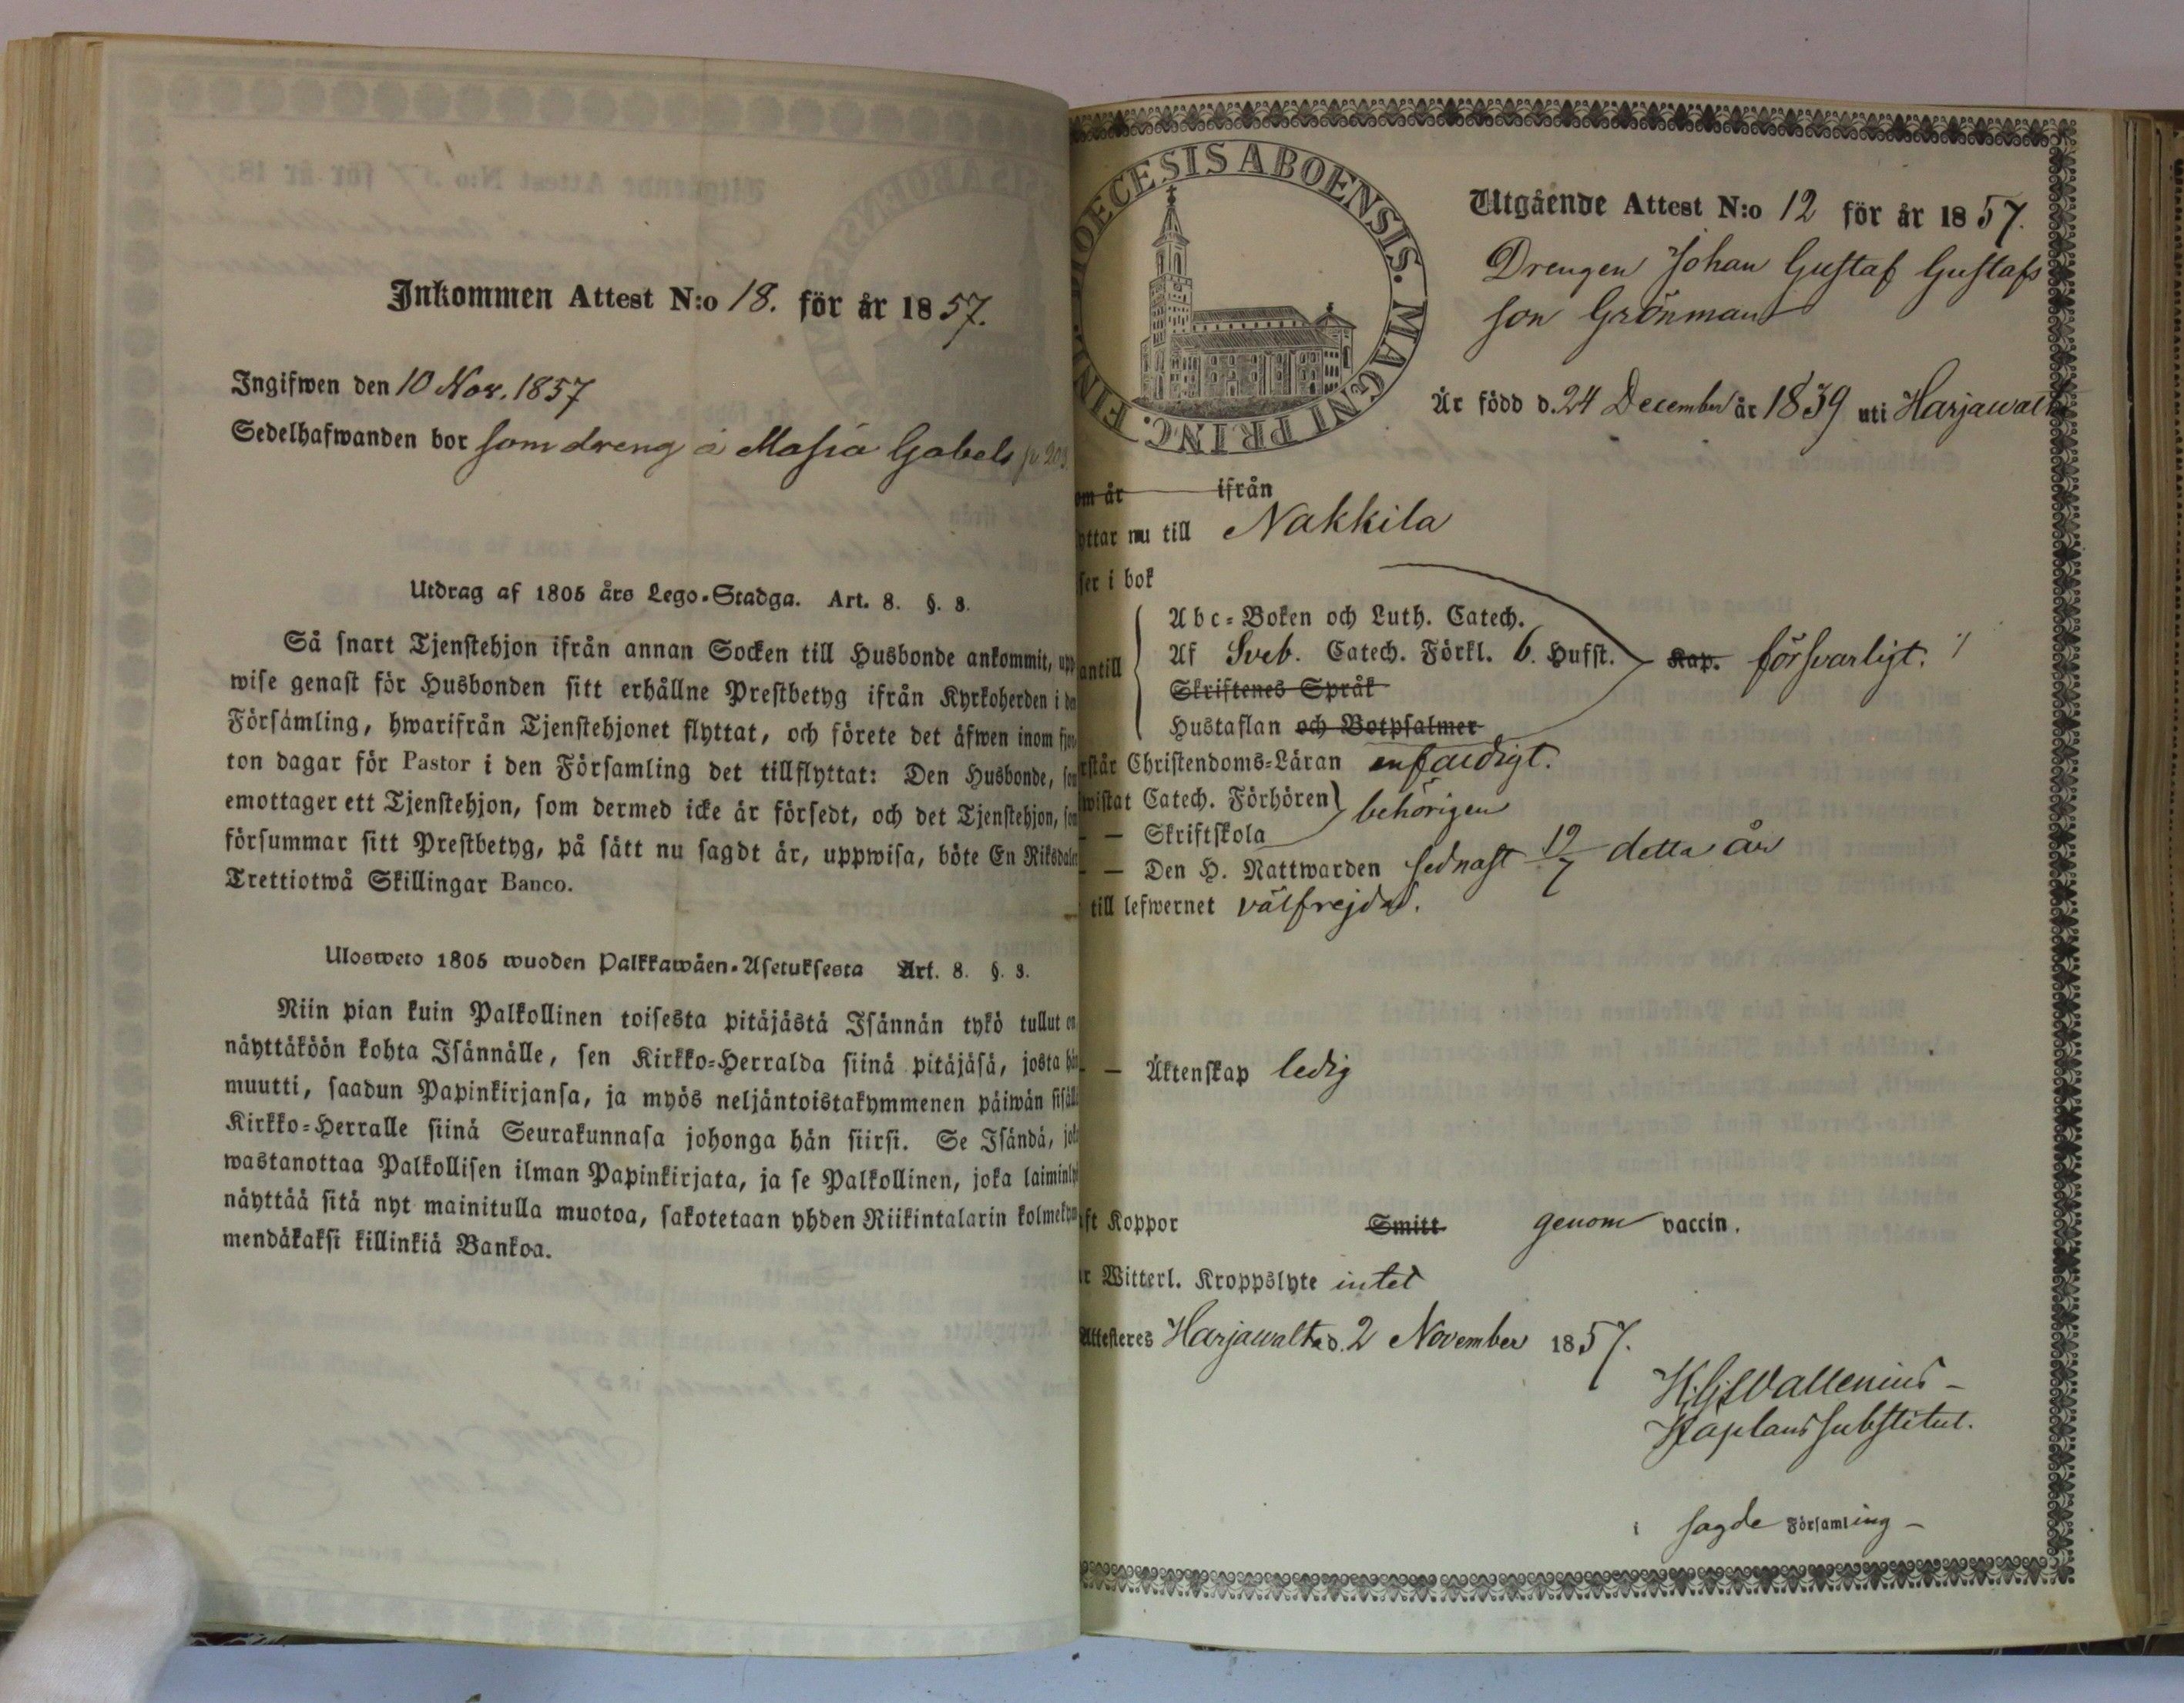 Inkommen Attest N:o 18. för år 1857.
Ingifwen den 10 Nov. 1857
Sedelhafwanden bor som dreng å Masia Gabels p. 203
Utdrag af 1805 års Lego-Stadga. Art. 8. §. 3.
Så snart Tjenstehjon ifrån annan Socken till Husbonde ankommit, upp
wise genast för Husbonden sitt erhållne Prestbetyg ifrån Kyrkoherden i
Församling, hwarifrån Tjenstehjonet flyttat, och förete det äfwen inom fjor
ton dagar för Pastor i den Församling det tillflyttat: Den Husbonde,
emottager ett Tjenstehjon, som dermed icke är försedt, och det Tjenstehjon,
försummar sitt Prestbetyg, på sätt nu sagdt är, uppwisa, böte En Riksdaler
Trettiotwå Skillingar Banco.
Ulosweto 1805 wuoden Palkkawäen-Asetuksesta Art. 8. §. 3.
Niin pian kuin Palkollinen toisesta pitäjästä Isännän tykö tullut on
näyttäköön kohta Isännälle, sen Kirkko-Herralda siinä pitäjäsä, josta hän
muutti, saadun Papinkirjansa, ja myös neljäntoistakymmenen päiwän sisällä
Kirkko-Herralle siinä Seurakunnasa johonga hän siirsi. Se Isändä, joka
wastanottaa Palkollisen ilman Papinkirjata, ja se Palkollinen, joka laiminly
näyttää sitä nyt mainitulla muotoa, sakotetaan yhden Riikintalarin kolmekym
mendäkaksi killinkiä Bankoa.
DIOECESIS ABOENSIS. MAGNI PRINC. FINL.
Utgående Attest N:o 12 för år 1857.
Drengen Johan Gustaf Gustafs
son Grönman
Är född d. 24 December år 1839 uti Harjawalta
om år ifrån
yttar nu till Nakkila
ser i bok
Abc-Boken och Luth. Catech.
antill Af Sveb. Catech. Förkl. 6. Hufst. Kap. försvarligt.
Skriftenes Språk
Hustaflan och Botpsalmer
rstår Christendoms-Läran enfaldigt.
wistat Catech. Förhören behörigen
— Skriftskola
— Den H. Nattwarden sednast 19/7 detta år
till lefwernet välfrejdad.
— Äktenskap ledig
ft Koppor Smitt genom vaccin.
r Witterl. Kroppslyte intet
Attesteres Harjawalta d. 2 November 1857.
H. G. Wallenius
Kaplans substitut.
i sagde Församling